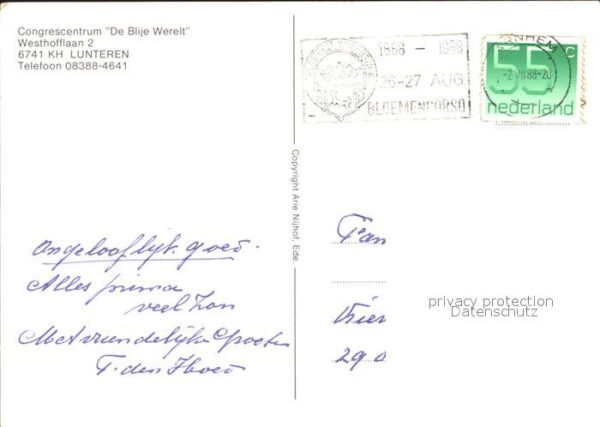 Congrescentrum "De Blije Werelt"
Westhofflaan 2
6741 KH LUNTEREN
Telefoon 08388-4641
1888 - 1988
26-27 AUG
BLOEMENCORSO
ARNHEM
-2.VIII.88-20
55 c
nederland
Copyright Arie Nijhof, Ede
Ongelooflijk goed.
Alles prima
veel zon
Met vriendelijke Groeten
T. den
Fam
privacy protection
Datenschutz
29